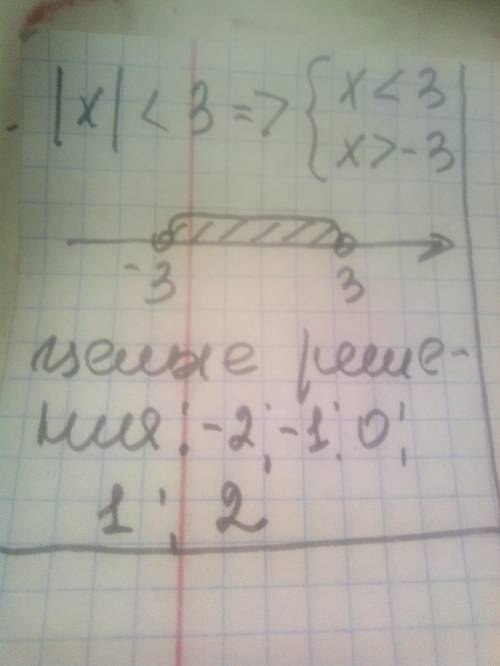 |x| < 3 => { x < 3
x > -3
-3 3
целые реше-
ния: -2; -1; 0;
1; 2